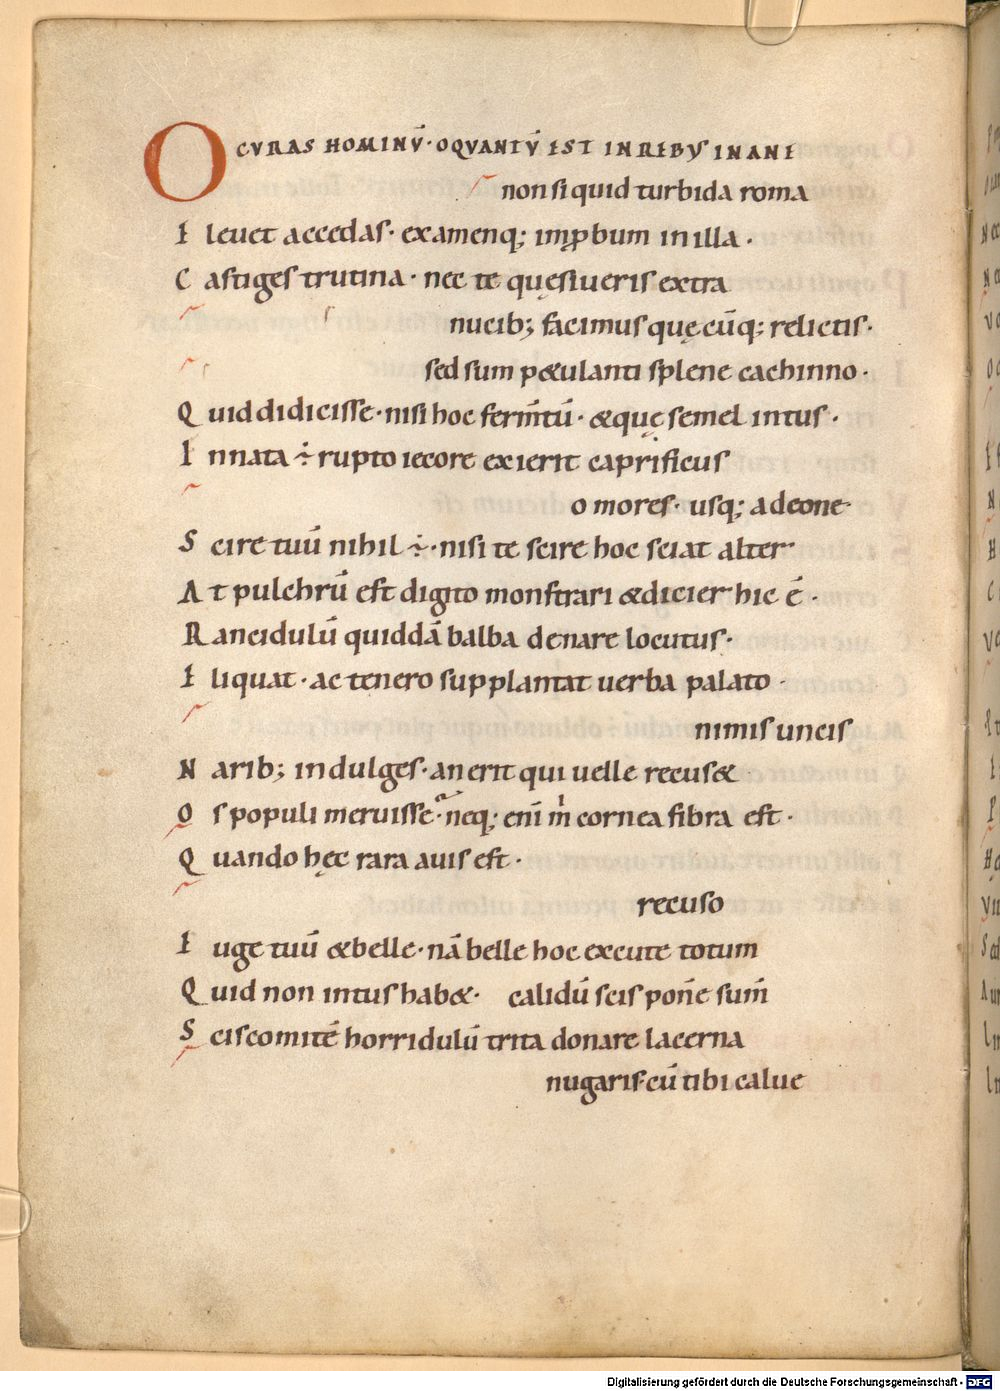 O CVRAS HOMINV̄· OQVANTV̄ EST INREBVS INANE
non si quid turbida roma
E leuet accedas· examenq; imꝓbum in illa·
C astiges trutina· nec te quęsiueris extra
nucib; facimus quęcūq; relictis·
sed sum p&ulanti splene cachinno·
Q uid didicisse· nisi hoc ferm̄tū· &quę semel intus·
I nnata ÷ rupto iecore exierit caprificus
o mores· usq; adeone
S cire tuū nihil ÷· nisi te scire hoc sciat alter
A t pulchrū est digito monstrari &dicier hic ē·
R ancidulū quiddā balba denare locutus·
E liquat· ac tenero supplantat uerba palato·
nimis uncis
N arib; indulges· an erit qui uelle recus&
O s populi meruisse· neq; enī m̍ cornea fibra est·
Q uando hęc rara auis est·
recuso
E uge tuū &belle· nā belle hoc excute totum
Q uid non intus hab&· calidū scis pon̄e sum̄
S cis comitē horridulū trita donare lacerna
nugaris· cū tibi calue
Digitalisierung gefördert durch die Deutsche Forschungsgemeinschaft - DFG